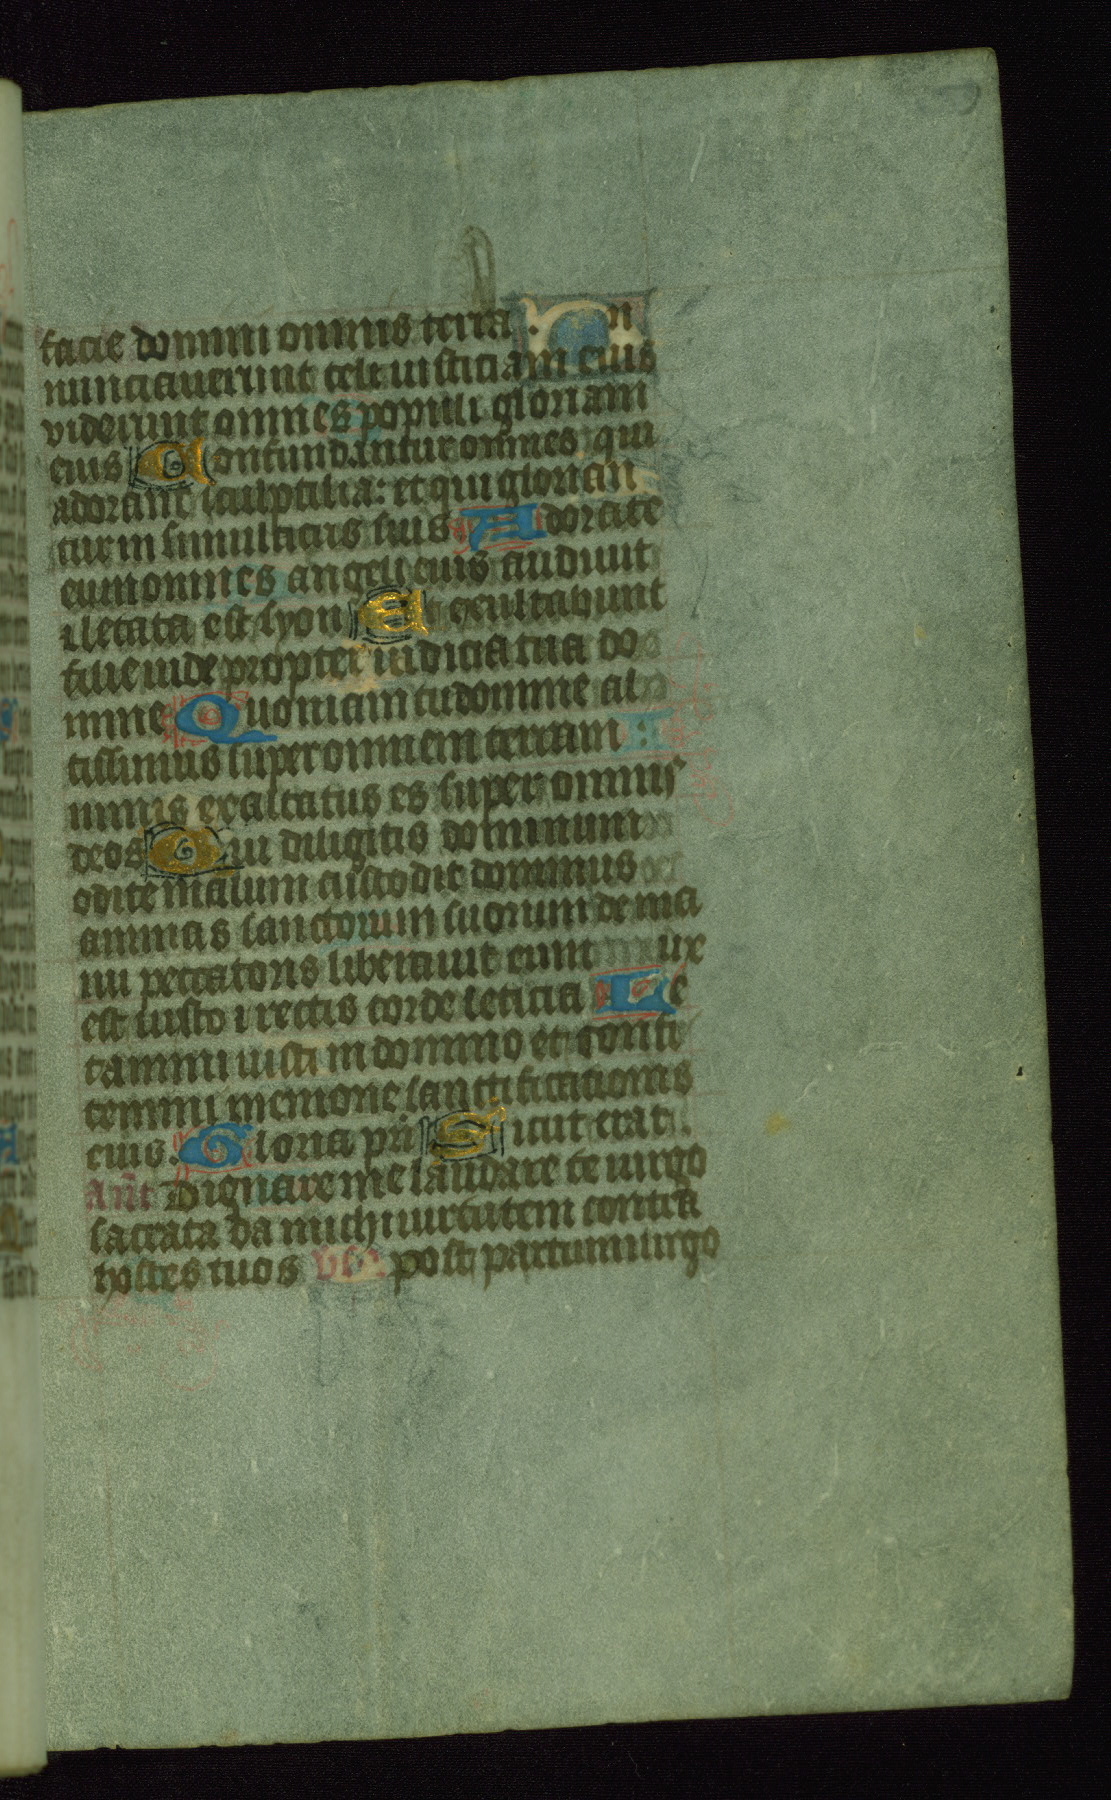 facie domini omnis terra. An
nunciauerunt celi iusticiam eius
viderunt omnes populi gloriam
eius Confundantur omnes qui
adorant sculptilia: et qui glorian
tur in simulacris suis Adorate
eum omnes angeli eius audiuit
⁊ letata est syon Et exultabunt
filie iude propter iudicia tua do
mine Quoniam tu domine al
tissimus super omnem terram
nimis exaltatus es super omnis
deos Qui diligitis dominum
odite malum custodit dominus
animas sanctorum suorum de ma
nu peccatoris liberauit eum ux
est iusto ⁊ rectis corde leticia Le
tamini iusti in domino et confi
temini memorie sanctificationis
eius. Gloria pri Sicut erat
Ant Dignare me laudare te uirgo
sacrata da michi uirtutem contra
hostes tuos ps. post partum uirgo